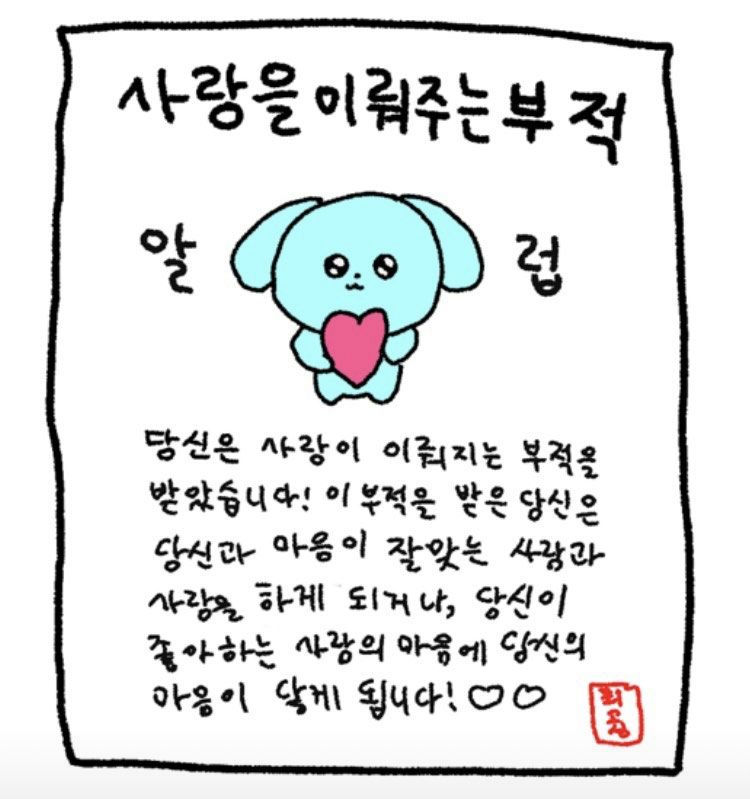 사랑을 이뤄주는 부적
알 럽
당신은 사랑이 이뤄지는 부적을
받았습니다! 이 부적을 받은 당신은
당신과 마음이 잘맞는 사람과
사랑을 하게 되거나, 당신이
좋아하는 사람의 마음에 당신의
마음이 닿게 됩니다! ♡♡